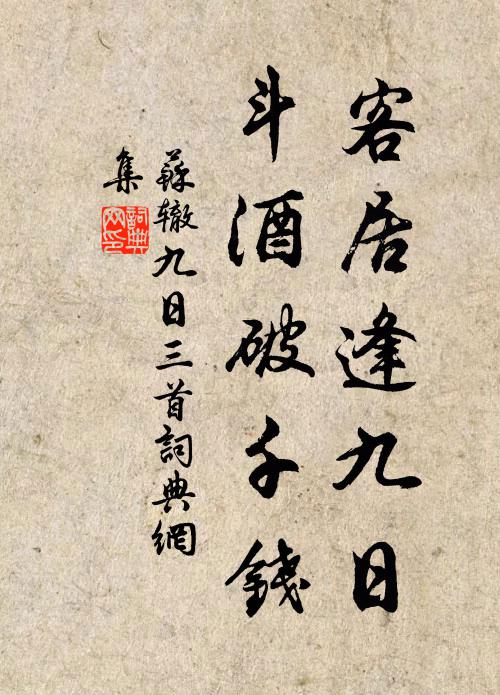 客居逢九日
斗酒破千錢
蘇辙九日三首詞典網
集
詞典網印